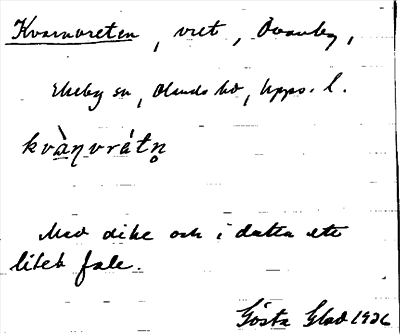 Kvarnvreten, vret, Ovanby,
Ekeby sn, Olands hd, Upps. l.
kvàηvrétn̥
Med dike och i detta ett
litet fall.
Gösta Glad 1926